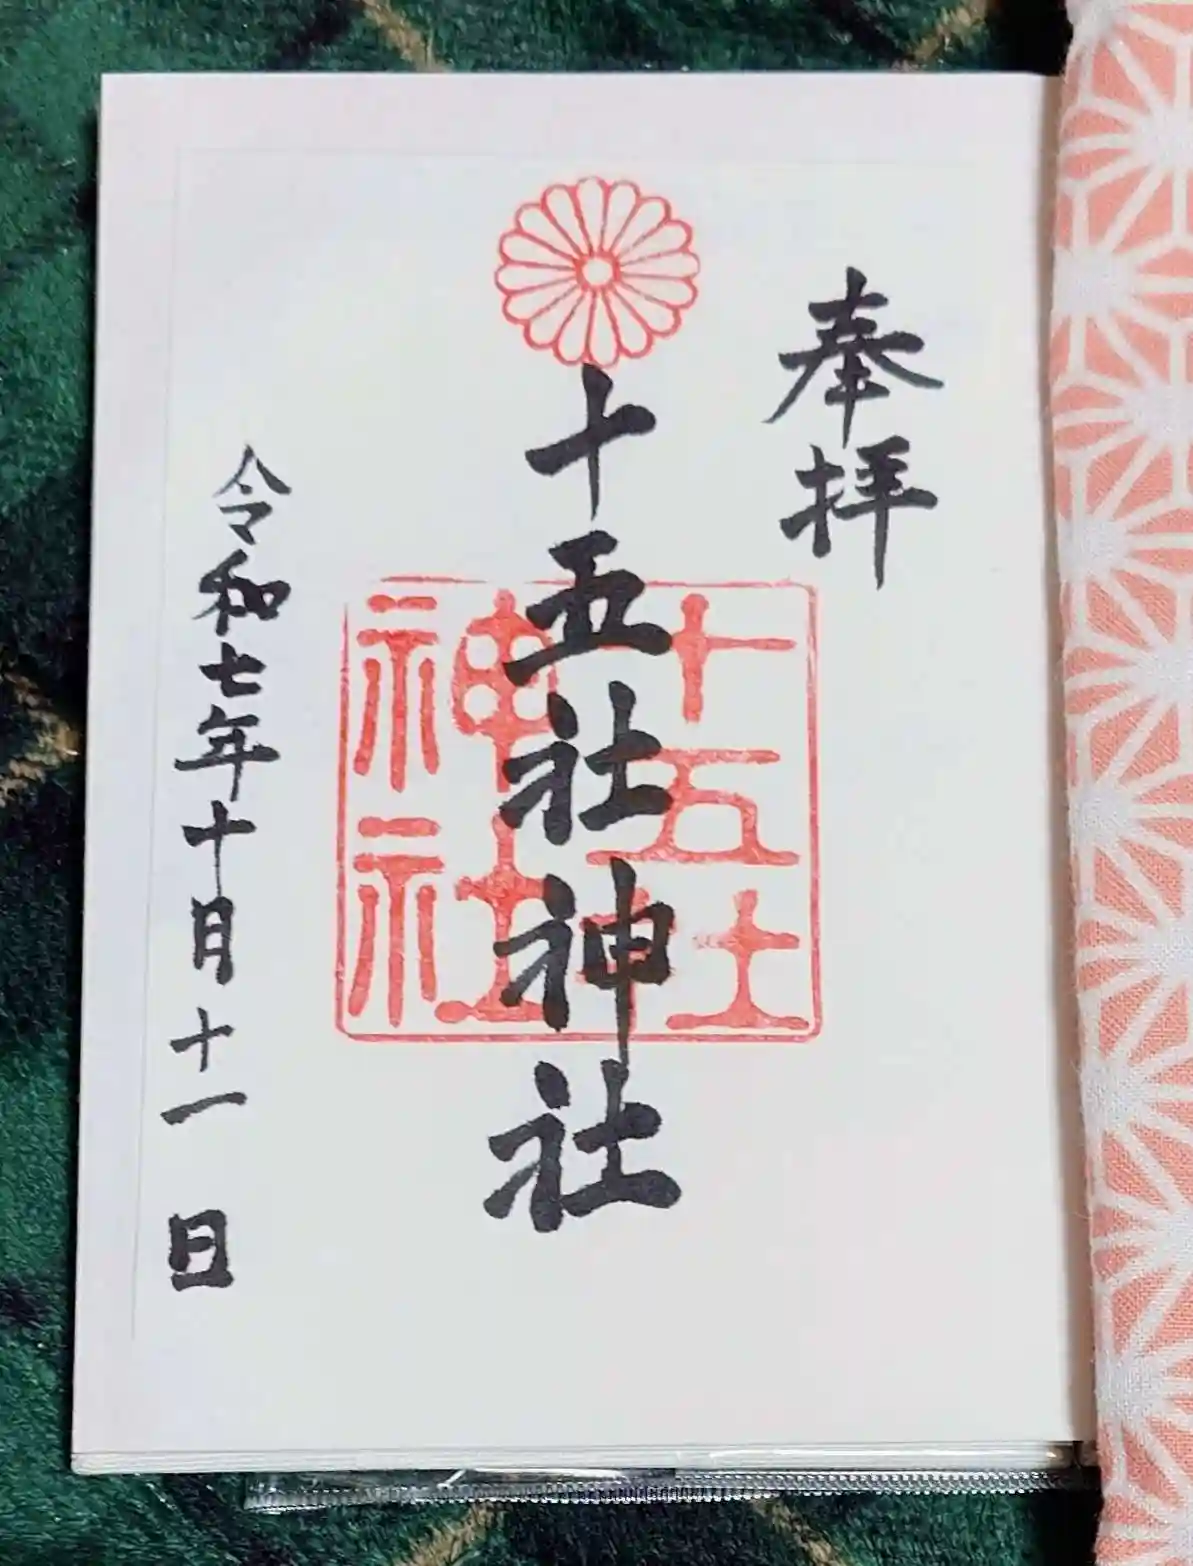 奉拝
十五社神社
十五社
神社
令和七年十月十一日